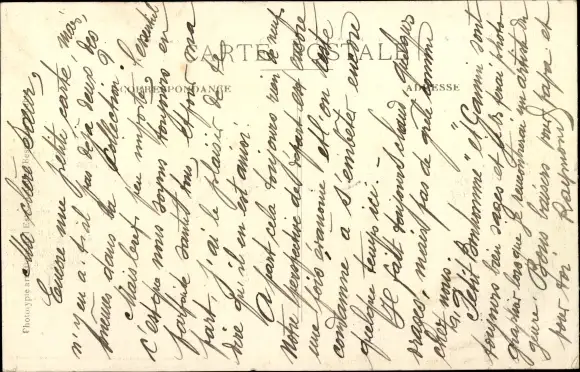 CARTE POSTALE
CORRESPONDANCE
ADRESSE
Ma chère sœur,
Encore une petite carte, mais,
n'y en a-t-il pas déjà deux des
mêmes dans la collection ?
Mais bref, peu importe, l'essentiel
c'est que nous soyons toujours en
parfaite santé tous et pour ma
part, j'ai le plaisir de te
dire qu'il en est ainsi.
A part cela toujours rien de neuf
notre perspective de départ est encore
une fois évanouie et l'on reste
condamné à s'embêter encore
quelque temps ici.
Il fait toujours chaud, quelques
orages, mais pas de grêle comme
chez nous
"Petit Bonhomme" et Ganini sont
toujours bien sages et je les
photographierai lorsque je rencontrerai un artiste du
genre. Bons baisers pour papa et
pour toi Raymond
Phototypie